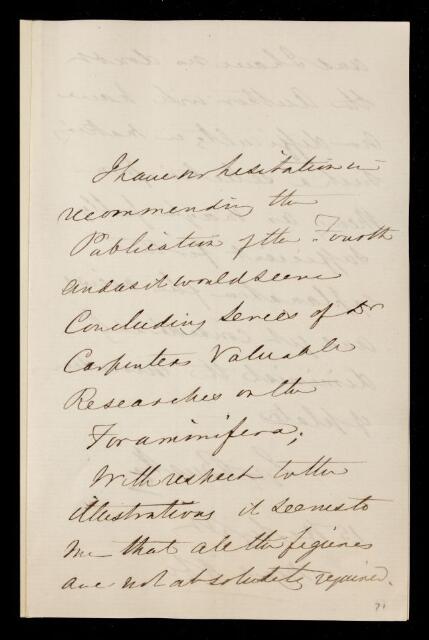 I have no hesitation in
recommending the
Publication of the Fourth
and as it would seem
Concluding Series of Dr
Carpenters Valuable
Researches on the
Foraminifera;
With respect to the
illustrations it seems to
me that all the figures
are not absolutely required.